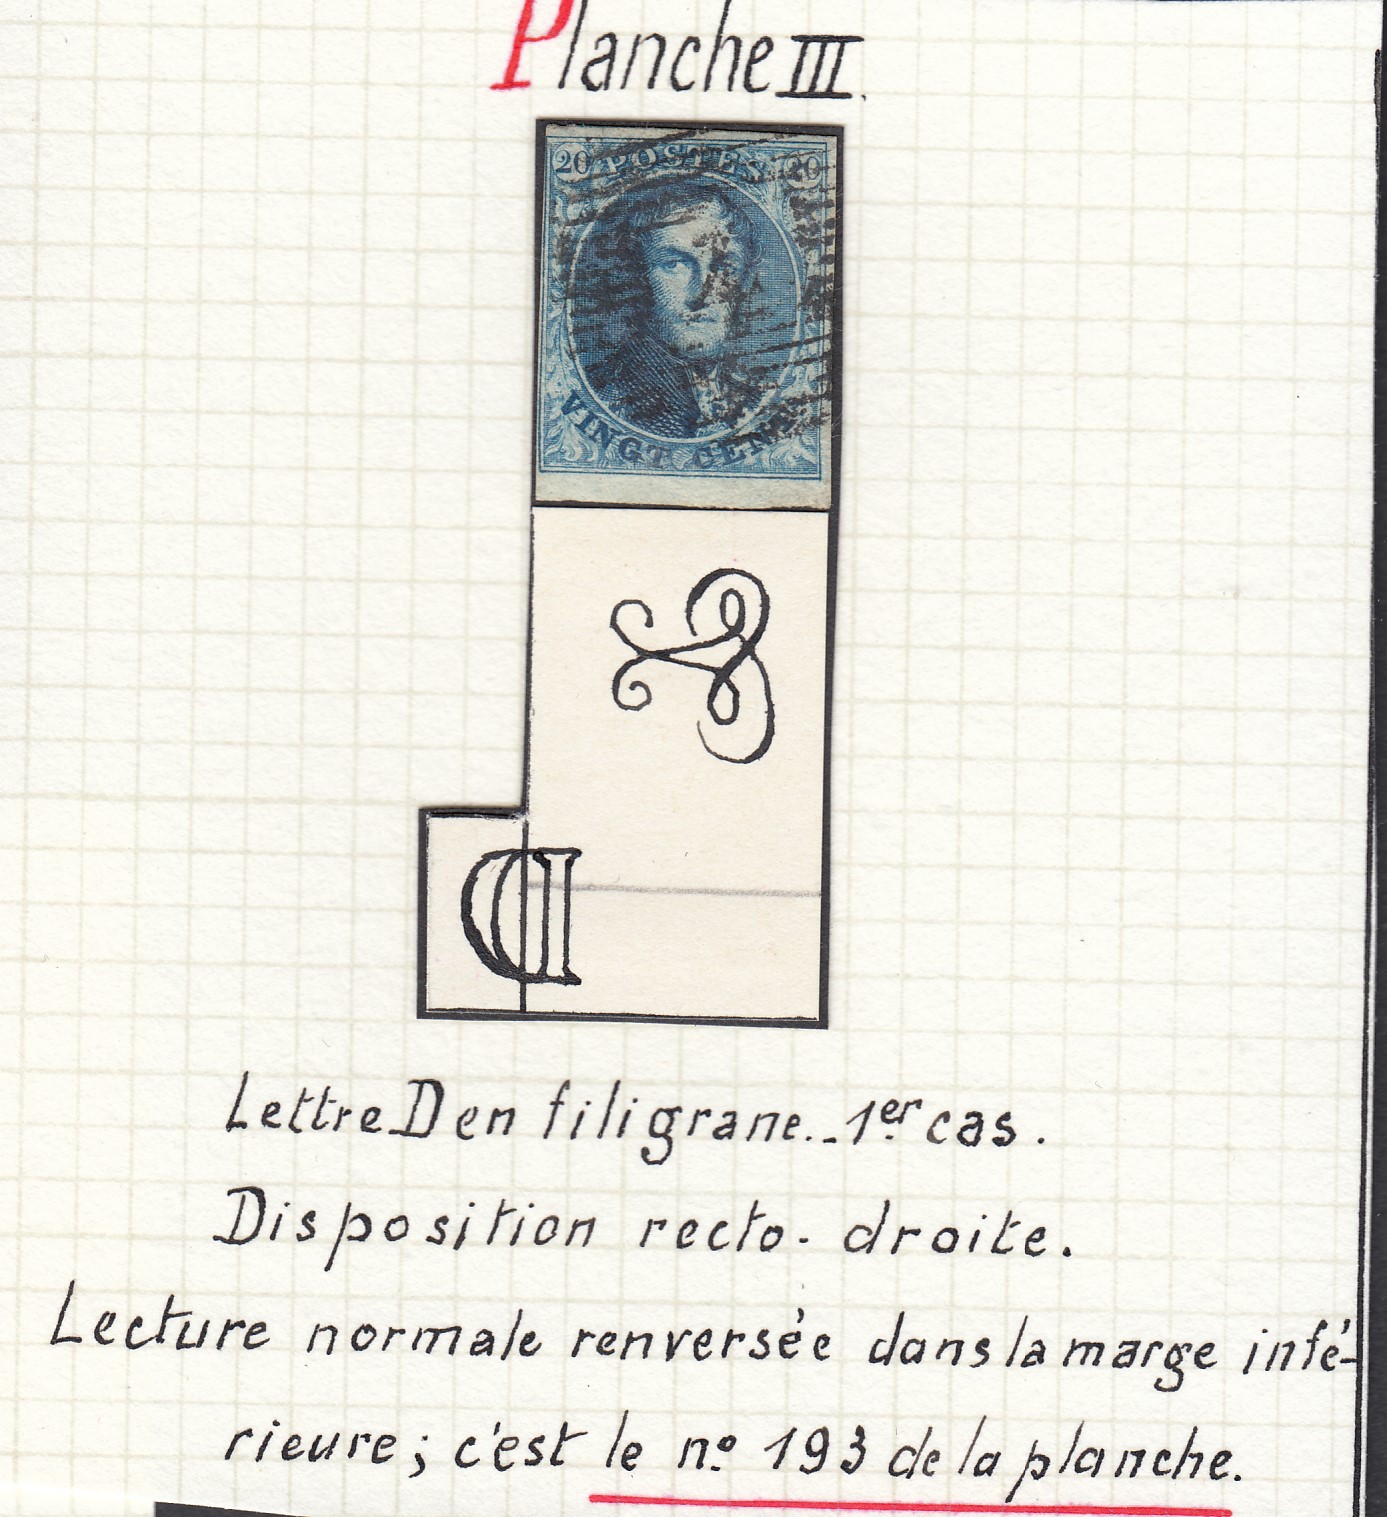 Planche III.
20 POSTES 20
VINGT CENT
D
Lettre D en filigrane._ 1er cas.
Disposition recto-droite.
Lecture normale renversée dans la marge infé-
rieure; c'est le no 193 de la planche.